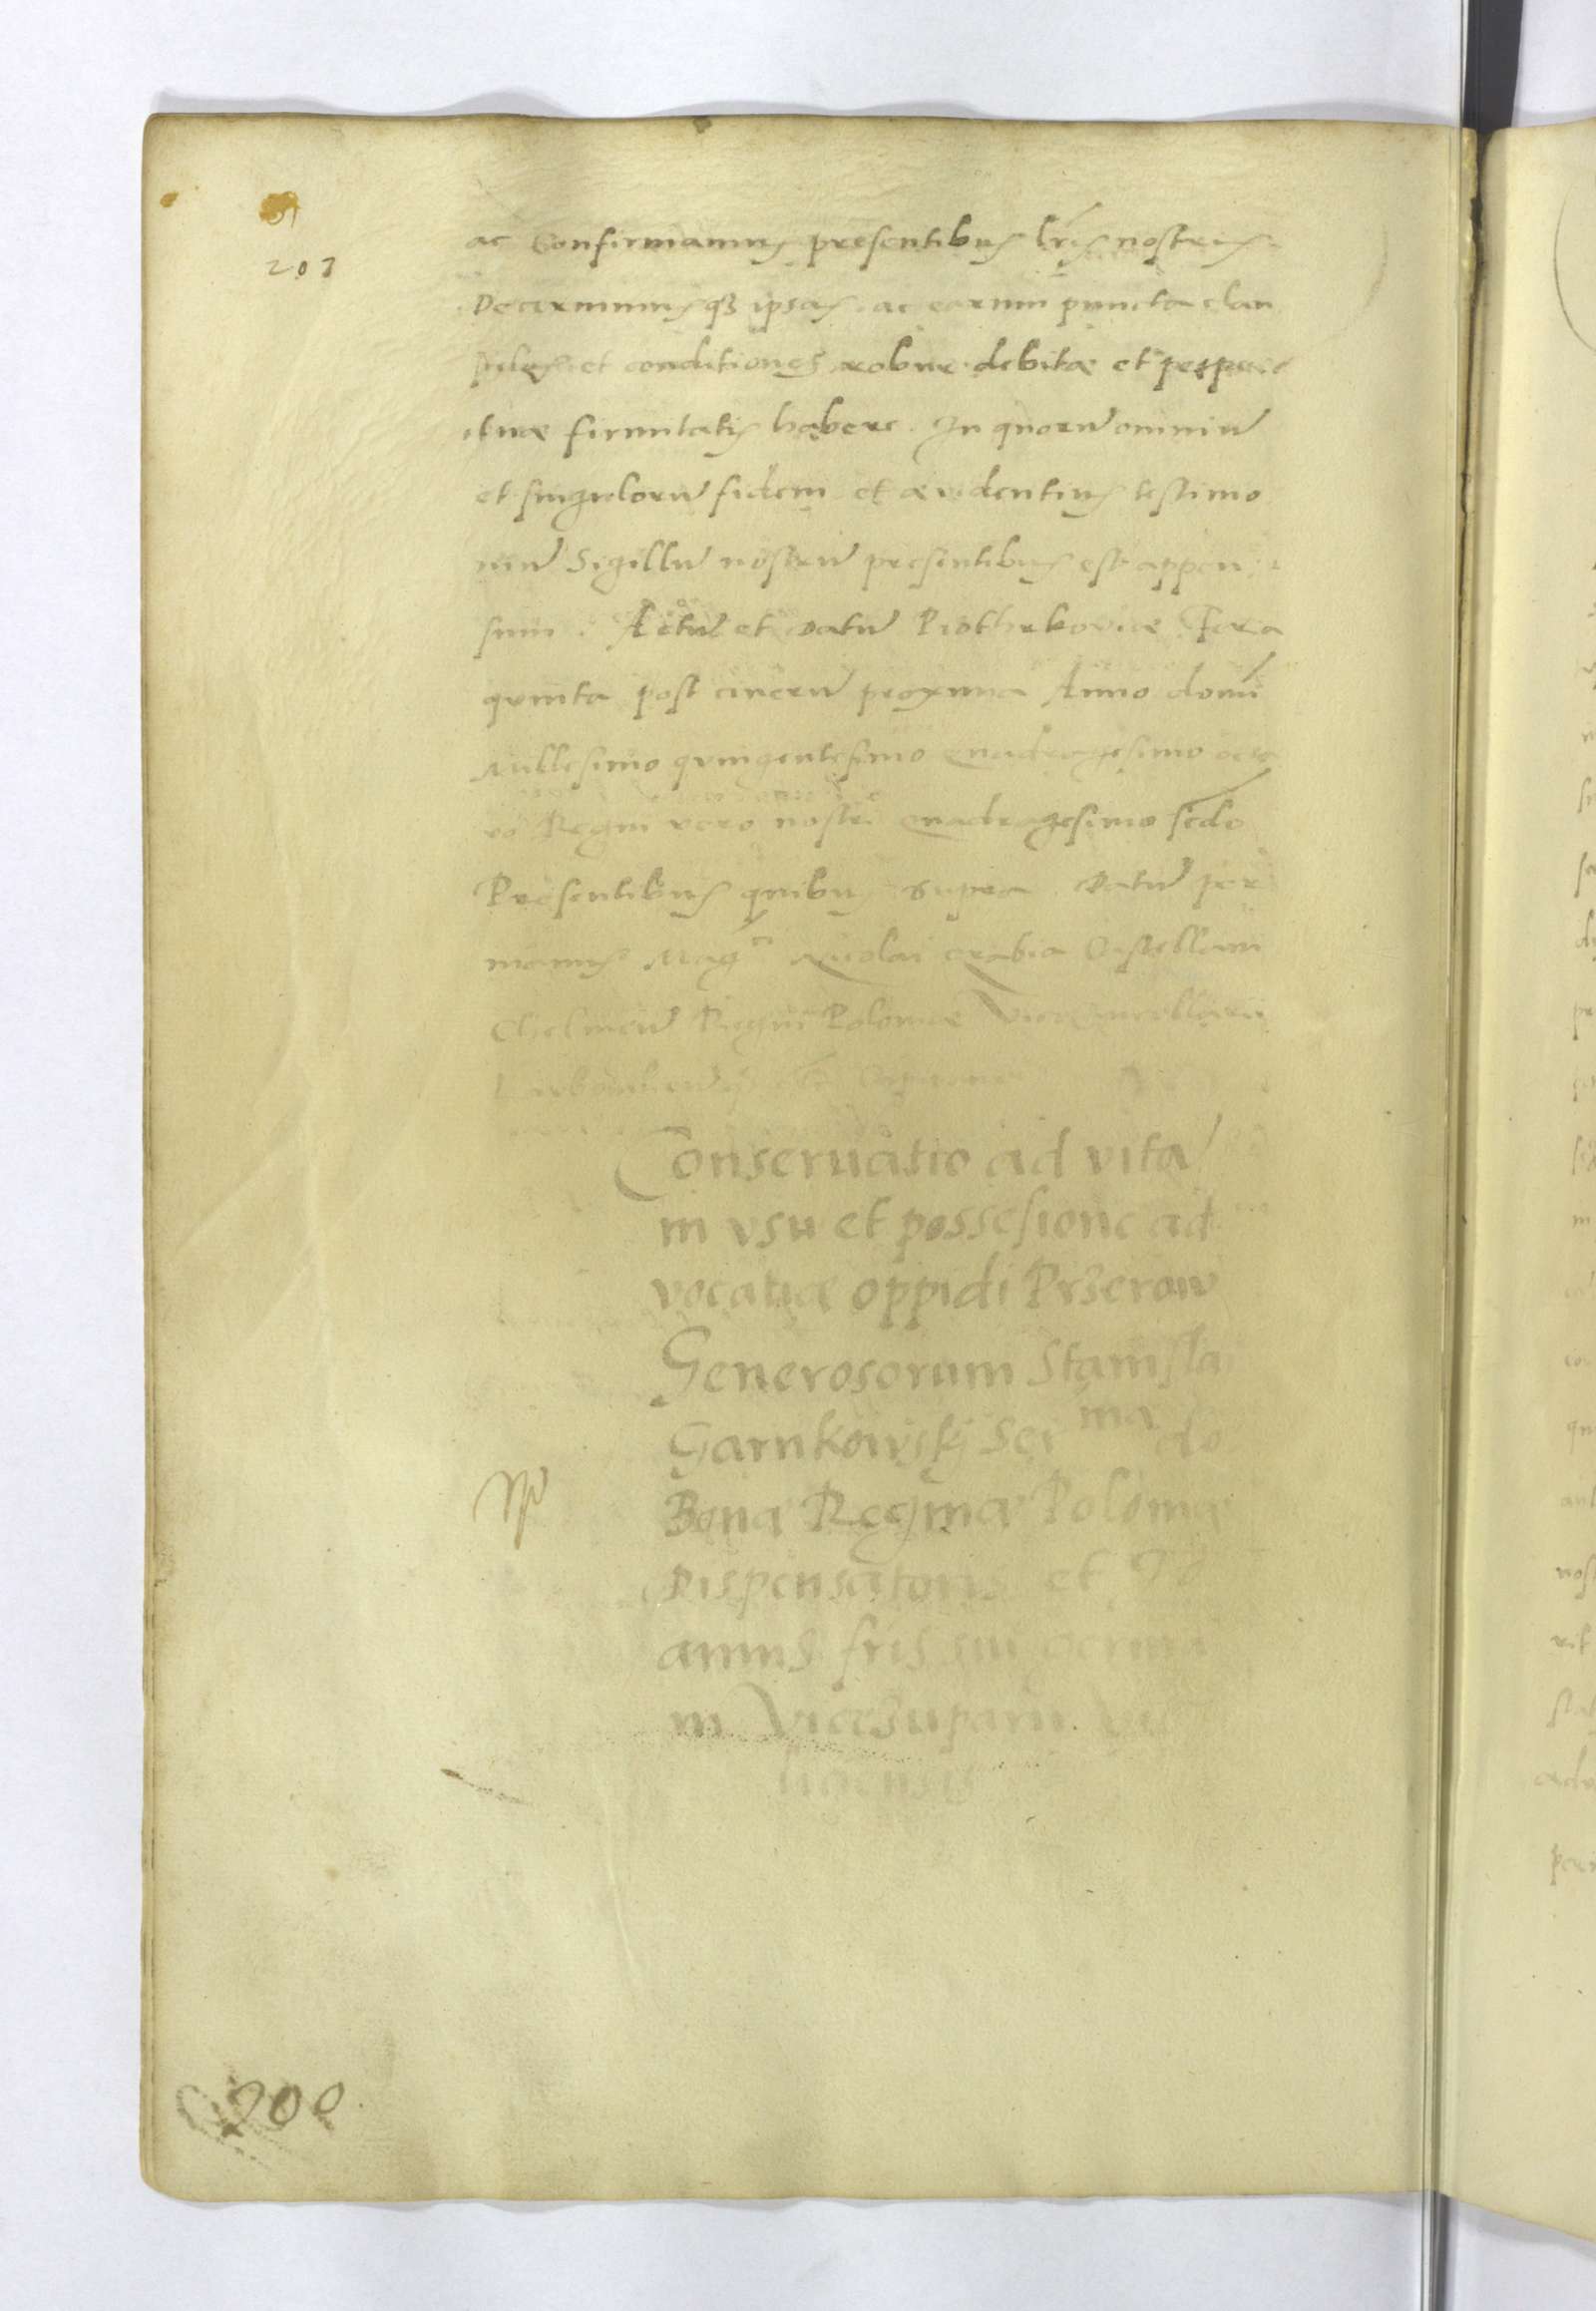 207
ac Confirmamus presentibus lrīs nostris
Decernimusq3 ipsas ac earum puncta clau
sulas et conditiones robur debitæ et perpe
tuæ firmitatis habere. In quorū omniū
et singulorū fidem et ævidentius testimo
niū Sigillū nostrū presentibus est appen
sum. Actū et datū Piothrkoviæ Feria
quinta post cinerū proxima Anno domī
Millesimo quingentesimo quadragesimo octa
vo Regni vero nostri quadragesimo scdo
Presentibus quibus supra Datū per
manus Magci Nicolai Grabia Castellani
Chelmeñ Regni Poloniæ Vicecancellarii
Capitanei
Conservatio ad vitā
in vsu et possesione ad
vocatiæ oppidi Przerow
Generosorum Stanisla
Garnkowskj Ser ma do
Bona Regina Polonia
Dispensatoris et
annis fris sui germa
ni Vicesuparii
200